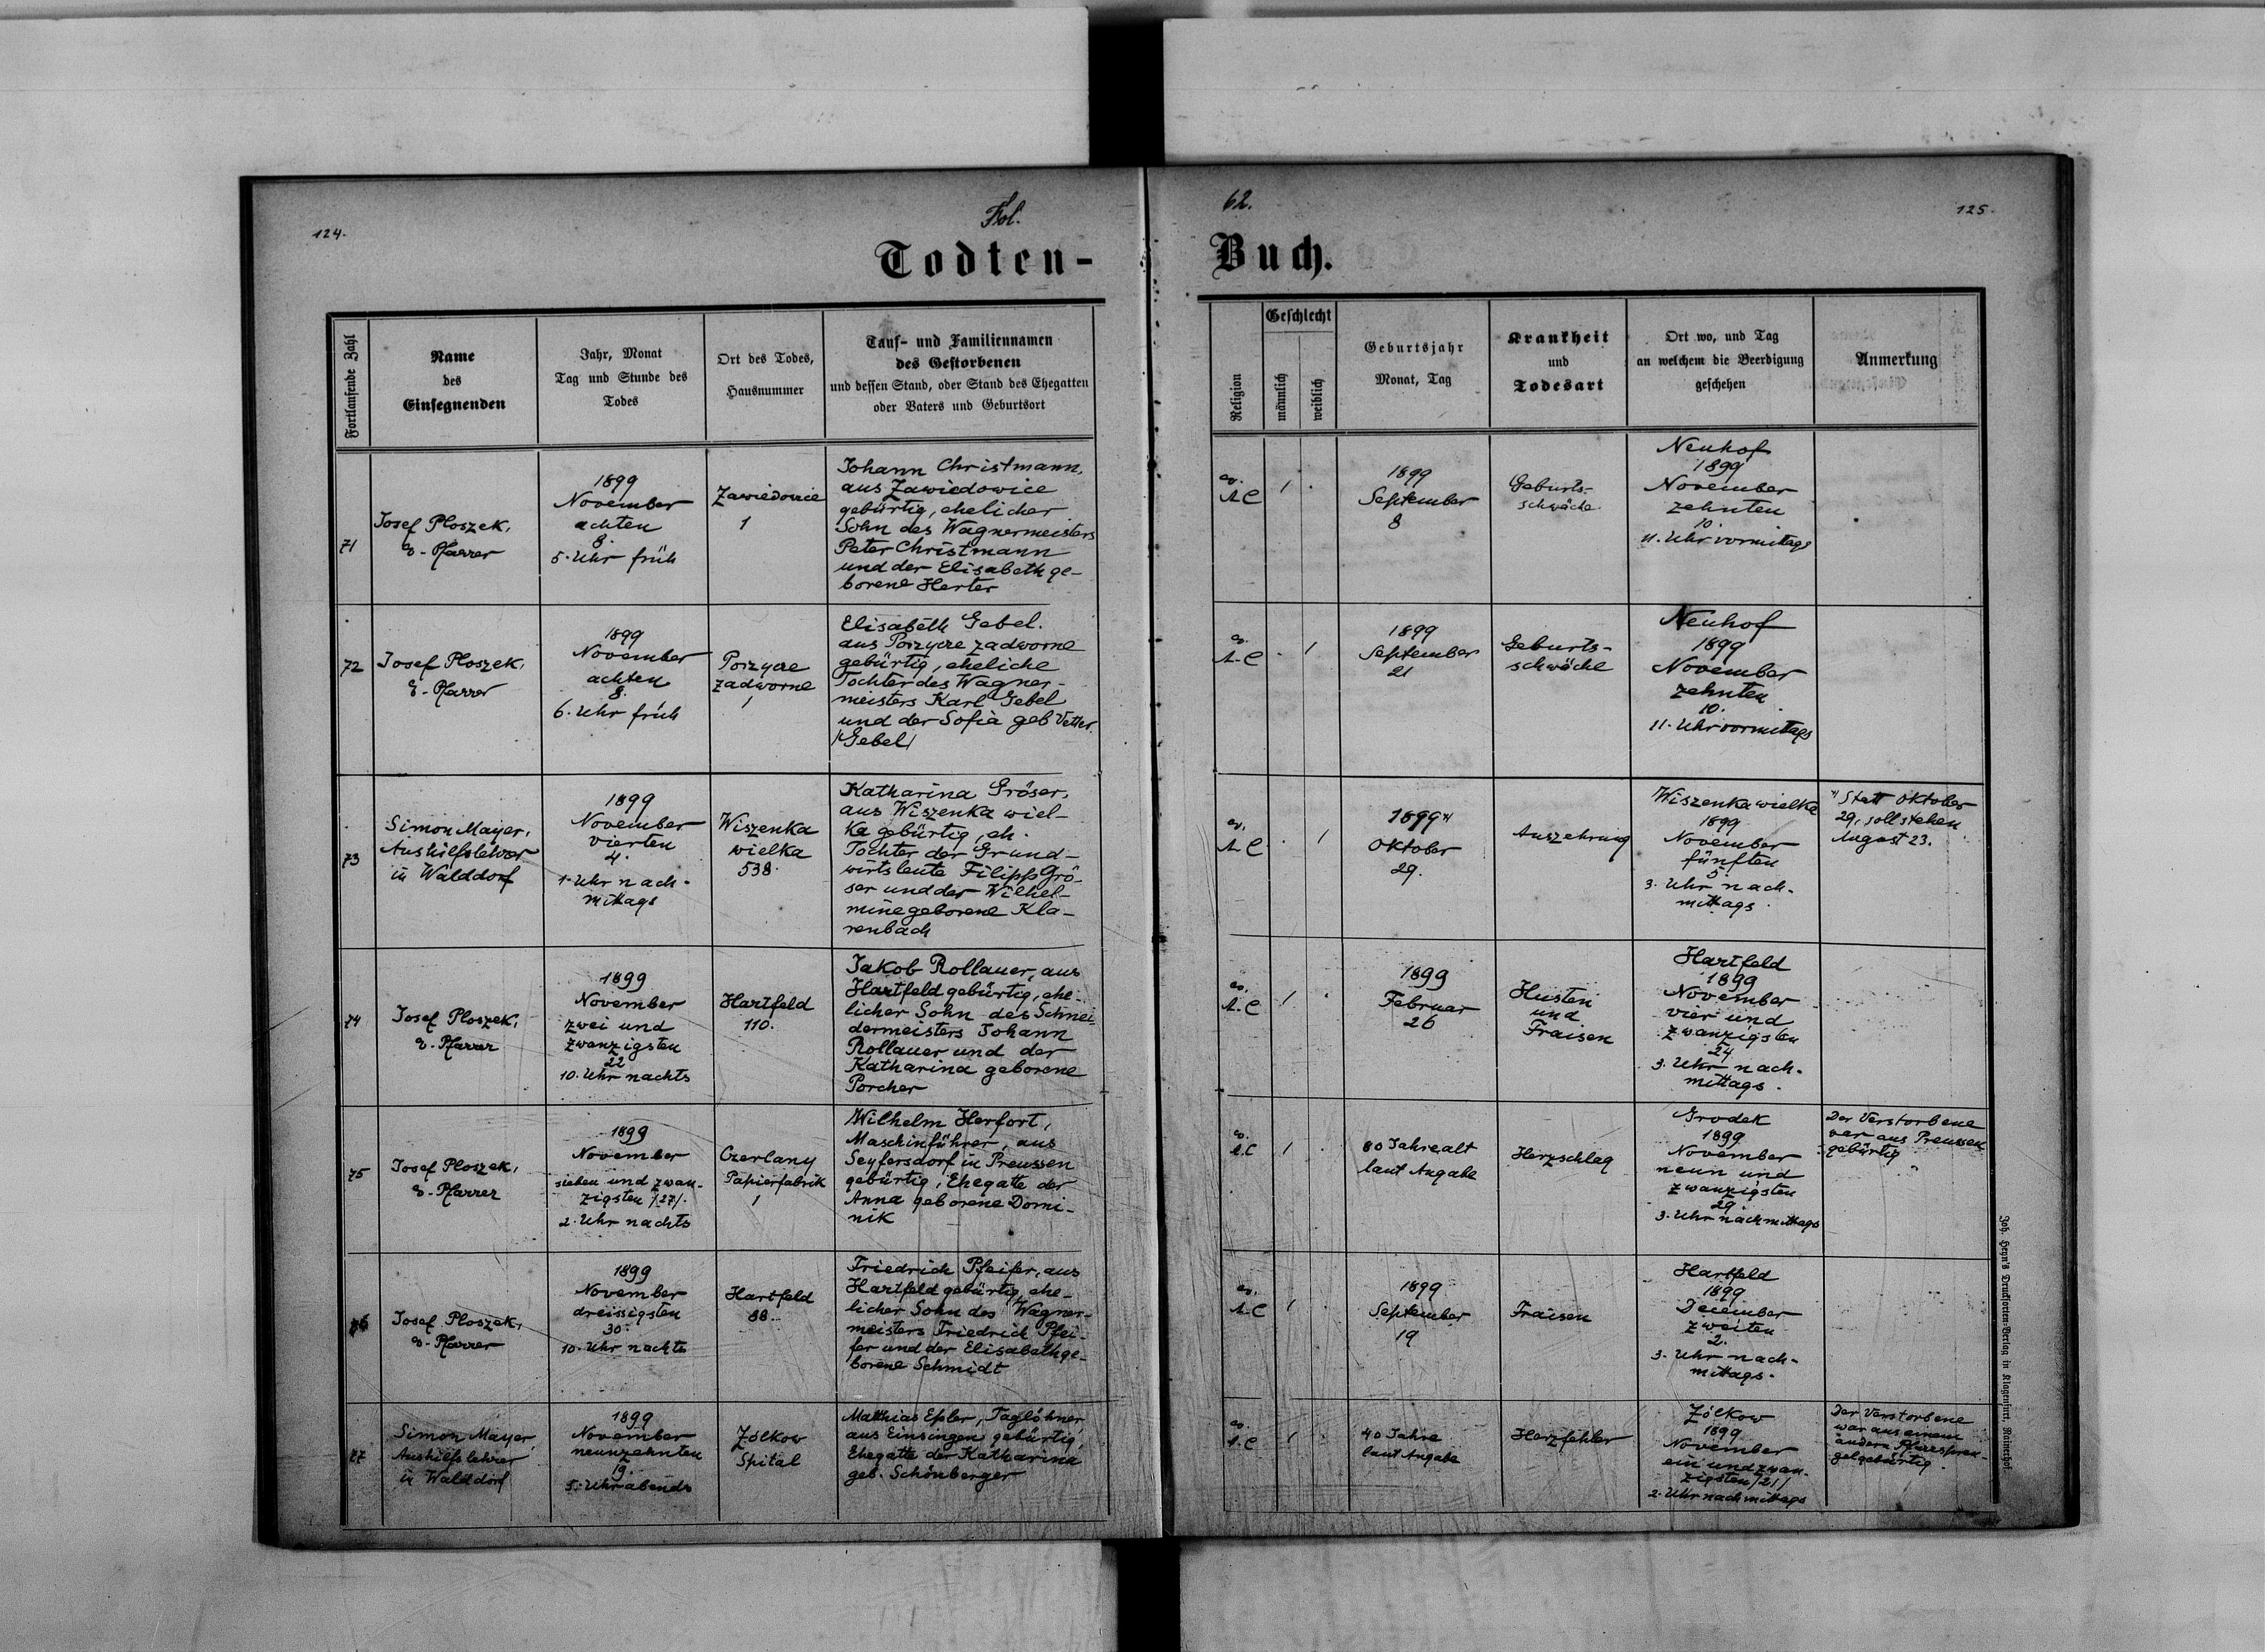 124.
Fol.
62.
125.
Todten-
Buch.
Fortlaufende Zahl
Name
des
Einsegnenden
Jahr, Monat
Tag und Stunde des
Todes
Ort des Todes,
Hausnummer
Tauf- und Familiennamen
des Gestorbenen
und dessen Stand, oder Stand des Ehegatten
oder Vaters und Geburtsort
Religion
Geschlecht
männlich
weiblich
Geburtsjahr
Monat, Tag
Krankheit
und
Todesart
Ort wo, und Tag
an welchem die Beerdigung
geschehen
Anmerkung
71
Josef Ploszek,
e. Pfarrer
1899
November
achten
8.
5. Uhr früh
Zawidowice
1
Johann Christmann,
aus Zawidowice
gebürtig, ehelicher
Sohn des Wagnermeisters
Peter Christmann
und der Elisabeth ge-
borene Herter
ev.
A.C
1 .
1899
September
8
Geburts-
schwäche
Neuhof
1899
November
zehnten
10.
11. Uhr vormittags
72
Josef Ploszek,
e. Pfarrer
1899
November
achten
8.
6. Uhr früh
Porzycze
zadworne
1
Elisabeth Gebel.
aus Porzycze zadworne
gebürtig, eheliche
Tochter des Wagner-
meisters Karl Gebel
und der Sofia geb Vetter.
/Gebel/
ev.
A.C
. 1
1899
September
21
Geburts-
schwäche
Neuhof
1899
November
zehnten
10.
11. Uhr vormittags
73
Simon Mayer,
Aushilfslehrer
in Walddorf
1899
November
vierten
4.
1. Uhr nach-
mittags
Wiszenka
wielka
538.
Katharina Gröser,
aus Wiszenka wiel-
ka gebürtig, eh.
Tochter der Grund-
wirtsleute Filipp Grö-
ser und der Wilhel-
mine geborene Kla-
renbach
ev.
A.C
. 1
1899 *)
Oktober
29.
Auszehrung
Wiszenka wielka
1899
November
fünften
5.
3. Uhr nach-
mittags.
*) Statt Oktober
29, soll stehen
August 23.
74
Josef Ploszek,
e. Pfarrer
1899
November
zwei und
zwanzigsten
22
10. Uhr nachts
Hartfeld
110.
Jakob Rollauer, aus
Hartfeld gebürtig, ehe-
licher Sohn des Schnei-
dermeisters Johann
Rollauer und der
Katharina geborene
Porcher
ev.
A.C
1 .
1899
Februar
26
Husten
und
Fraisen
Hartfeld
1899
November
vier und
zwanzigsten
24
3. Uhr nach-
mittags.
75
Josef Ploszek,
e. Pfarrer
1899
November
sieben und zwan-
zigsten /27/.
2. Uhr nachts
Czerlany
Papierfabrik
1
Wilhelm Herfort,
Maschinführer, aus
Seyfersdorf in Preussen
gebürtig, Ehegatte der
Anna geborene Domi-
nik
ev.
A.C
1 .
80 Jahre alt
laut Angabe
Herzschlag
Grodek
1899
November
neun und
zwanzigsten
29.
3. Uhr nachmittags
Der Verstorbene
war aus Preussen
gebürtig
76
Josef Ploszek,
e. Pfarrer
1899
November
dreissigsten
30.
10. Uhr nachts
Hartfeld
88.
Friedrich Pfeifer, aus
Hartfeld gebürtig, ehe-
licher Sohn des Wagner-
meisters Friedrich Pfei-
fer und der Elisabeth ge-
borene Schmidt
ev.
A.C
1 .
1899
September
19
Fraisen
Hartfeld
1899
December
zweiten
2.
3. Uhr nach-
mittags.
77
Simon Mayer
Aushilfslehrer
in Walddorf
1899
November
neunzehnten
19.
5. Uhr abends
Zólkow
Spital
Matthias Epler, Taglöhner
aus Einsingen gebürtig,
Ehegatte der Katharina
geb. Schönberger
ev.
A.C
1 .
40 Jahre
laut Angabe
Herzfehler
Zólkow
1899
November
ein und zwan-
zigsten /21/
2. Uhr nachmittags
Der Verstorbene
war aus einem
andern Pfarrspren-
gel gebürtig.
Joh. Heyn's Drucksorten-Verlag in Klagenfurt, Rainerhof.